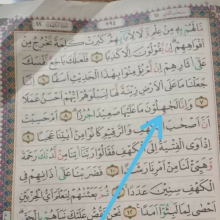 مَّا لَهُم بِهِۦ مِنْ عِلْمٍ وَلَا لِآبَآئِهِمْ كَبُرَتْ كَلِمَةً تَخْرُجُ مِنْ
أَفْوَٰهِهِمْ إِن يَقُولُونَ إِلَّا كَذِبًا ٥ فَلَعَلَّكَ بَٰخِعٌ نَّفْسَكَ
عَلَىٰٓ ءَاثَٰرِهِمْ إِن لَّمْ يُؤْمِنُوا۟ بِهَٰذَا ٱلْحَدِيثِ أَسَفًا ٦ إِنَّا
جَعَلْنَا مَا عَلَى ٱلْأَرْضِ زِينَةً لَّهَا لِنَبْلُوَهُمْ أَيُّهُمْ أَحْسَنُ عَمَلًا
٧ وَإِنَّا لَجَٰهِلُونَ مَا عَلَيْهَا صَعِيدًا جُرُزًا ٨ أَمْ حَسِبْتَ
أَنَّ أَصْحَٰبَ ٱلْكَهْفِ وَٱلرَّقِيمِ كَانُوا۟ مِنْ ءَايَٰتِنَا عَجَبًا ٩
إِذْ أَوَى ٱلْفِتْيَةُ إِلَى ٱلْكَهْفِ فَقَالُوا۟ رَبَّنَآ ءَاتِنَا مِن لَّدُنكَ رَحْمَةً
وَهَيِّئْ لَنَا مِنْ أَمْرِنَا رَشَدًا ١٠ فَضَرَبْنَا عَلَىٰٓ ءَاذَانِهِمْ
فِى ٱلْكَهْفِ سِنِينَ عَدَدًا ١١ ثُمَّ بَعَثْنَٰهُمْ لِنَعْلَمَ أَىُّ ٱلْحِزْبَيْنِ
أَحْصَىٰ لِمَا لَبِثُوٓا۟ أَمَدًا ١٢ نَّحْنُ نَقُصُّ عَلَيْكَ نَبَأَهُم